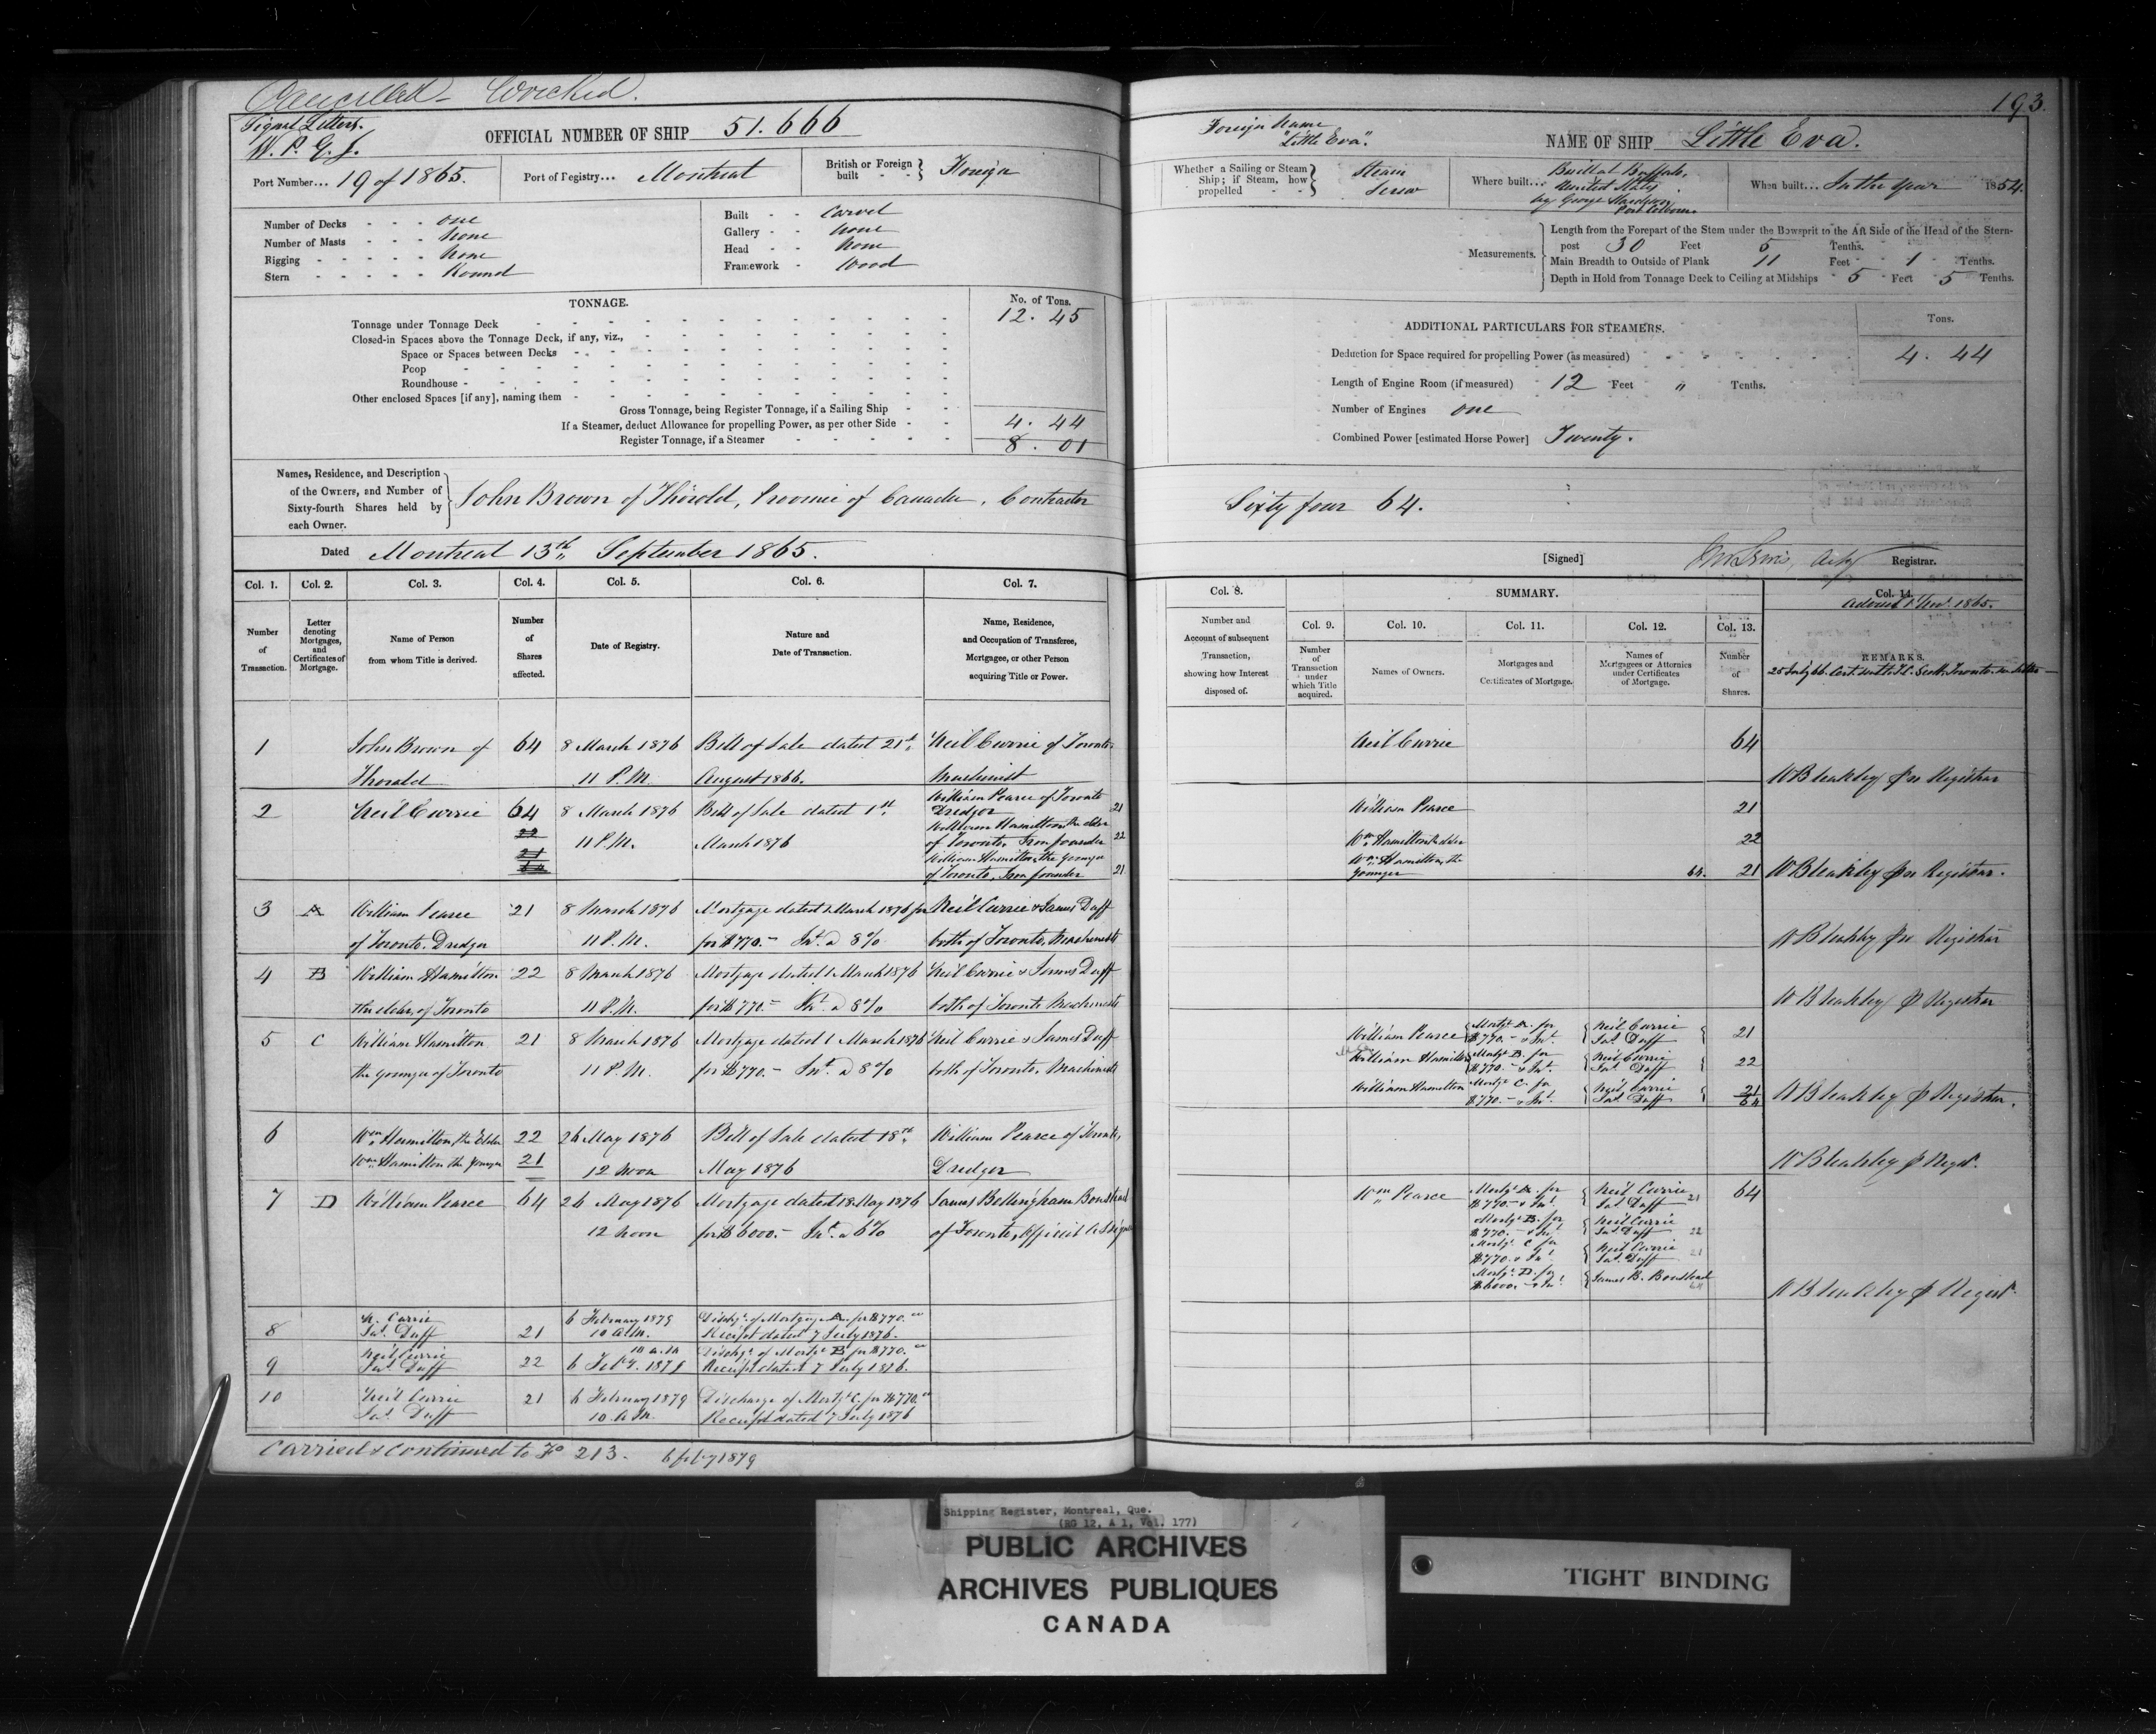 Cancelled - Wrecked.
Signal Letters.
W. P. G. J.
OFFICIAL NUMBER OF SHIP 51.666
Port Number... 19 of 1865.
Port of Registry... Montreal
British or Foreign built - - Foreign
Number of Decks - - - one
Number of Masts - - - none
Rigging - - - - - none
Stern - - - - - Round
Built - - Carvel
Gallery - - none
Head - - none
Framework - Wood
TONNAGE.
No. of Tons.
Tonnage under Tonnage Deck 12. 45
Closed-in Spaces above the Tonnage Deck, if any, viz.,
Space or Spaces between Decks
Poop
Roundhouse
Other enclosed Spaces [if any], naming them
Gross Tonnage, being Register Tonnage, if a Sailing Ship
If a Steamer, deduct Allowance for propelling Power, as per other Side 4. 44
Register Tonnage, if a Steamer 8. 01
Names, Residence, and Description
of the Owners, and Number of
Sixty-fourth Shares held by
each Owner.
John Brown of Thorold, Province of Canada, Contractor
Dated Montreal 13th September 1865.
Col. 1. Col. 2. Col. 3. Col. 4. Col. 5. Col. 6. Col. 7.
Number of Transaction.
Letter denoting Mortgages, and Certificates of Mortgage.
Name of Person from whom Title is derived.
Number of Shares affected.
Date of Registry.
Nature and Date of Transaction.
Name, Residence, and Occupation of Transferee, Mortgagee, or other Person acquiring Title or Power.
1 John Brown of 64 8 March 1876 Bill of Sale dated 21st Neil Currie of Toronto
Thorold 11 P.M. August 1866. Machinist
2 Neil Currie 64 8 March 1876 Bill of Sale dated 1st William Pearce of Toronto
Dredger 21
22 11 P.M. March 1876 William Hamilton the elder
of Toronto, Iron founder 22
21 William Hamilton, the younger
of Toronto, Iron founder 21
3 A William Pearce 21 8 March 1876 Mortgage dated 1 March 1876 for Neil Currie & James Duff
of Toronto. Dredger 11 P.M. for $770.- Int. @ 8% both of Toronto, Machinists
4 B William Hamilton 22 8 March 1876 Mortgage dated 1 March 1876 Neil Currie & James Duff
the elder, of Toronto 11 P.M. for $770.- Int. @ 8% both of Toronto Machinists
5 C William Hamilton 21 8 March 1876 Mortgage dated 1 March 1876 Neil Currie & James Duff
the younger of Toronto 11 P.M. for $770.- Int. @ 8% both of Toronto, Machinists
6 Wm Hamilton, the Elder 22 26 May 1876 Bill of Sale dated 18th William Pearce of Toronto,
Wm Hamilton the younger 21 12 noon May 1876 Dredger
7 D William Pearce 64 26 May 1876 Mortgage dated 18 May 1876 James Bellingham Boustead
12 noon for $6000.- Int. @ 6% of Toronto, Official Assignee
8 N. Currie Jas. Duff 21 6 February 1879 10 A.M. Dischge of Mortgage A. for $770.00
Receipt dated 7 July 1876.
9 Neil Currie Jas. Duff 22 10 a.m 6 Feby. 1879 Dischge. of Mortge B for $770.00
Receipt dated 7 July 1876.
10 Neil Currie Jas. Duff 21 6 February 1879 10 A.M. Discharge of Mortge C. for $770.00
Receipt dated 7 July 1876
Carried & continued to Fo 213. 6 feby 1879
193.
Foreign Name
"Little Eva".
NAME OF SHIP Little Eva.
Whether a Sailing or Steam Ship; if Steam, how propelled - -
Steam
Screw
Where built... Built at Buffalo,
United States
by George Hardison
Port Colborne
When built... In the year 1854.
Measurements.
Length from the Forepart of the Stem under the Bowsprit to the Aft Side of the Head of the Stern-
post 30 Feet 5 Tenths.
Main Breadth to Outside of Plank 11 Feet 1 Tenths.
Depth in Hold from Tonnage Deck to Ceiling at Midships 5 Feet 5 Tenths.
ADDITIONAL PARTICULARS FOR STEAMERS.
Tons.
Deduction for Space required for propelling Power (as measured) 4. 44
Length of Engine Room (if measured) 12 Feet " Tenths.
Number of Engines one
Combined Power [estimated Horse Power] Twenty.
Sixty four 64.
[Signed] Registrar.
Col. 8. SUMMARY. Col. 14.
Number and Account of subsequent Transaction, showing how Interest disposed of.
Col. 9. Col. 10. Col. 11. Col. 12. Col. 13.
Number of Transaction under which Title acquired.
Names of Owners.
Mortgages and Certificates of Mortgage.
Names of Mortgagees or Attornies under Certificates of Mortgage.
Number of Shares.
REMARKS.
25 July 66. Cert. sent to Scott, Toronto
Neil Currie 64
W Bleakley Registrar
William Pearce 21
Wm Hamilton the elder 22
Wm Hamilton, the
younger 64. 21 W Bleakley Registrar.
W Bleakley Registrar
W Bleakley Registrar
William Pearce Mortge A. for $770.- & Int. Neil Currie Jas. Duff 21
William Hamilton Mortge B. for $770.- & Int. Neil Currie Jas. Duff 22
William Hamilton Mortge C. for $770.- & Int. Neil Currie Jas. Duff 21
64 W Bleakley Registrar.
W Bleakley Regist.
Wm Pearce Mortge A. for $770.- & Int Neil Currie Jas. Duff 21 64
Mortge B. for $770.- & Int Neil Currie Jas. Duff 22
Mortge. C for $770. & Int Neil Currie Jas. Duff 21
Mortge. D. for $6000.- & Int James B. Boustead 64
W Bleakley Regist.
Shipping Register, Montreal, Que.
(RG 12, A 1, Vol. 177)
PUBLIC ARCHIVES
ARCHIVES PUBLIQUES
CANADA
TIGHT BINDING